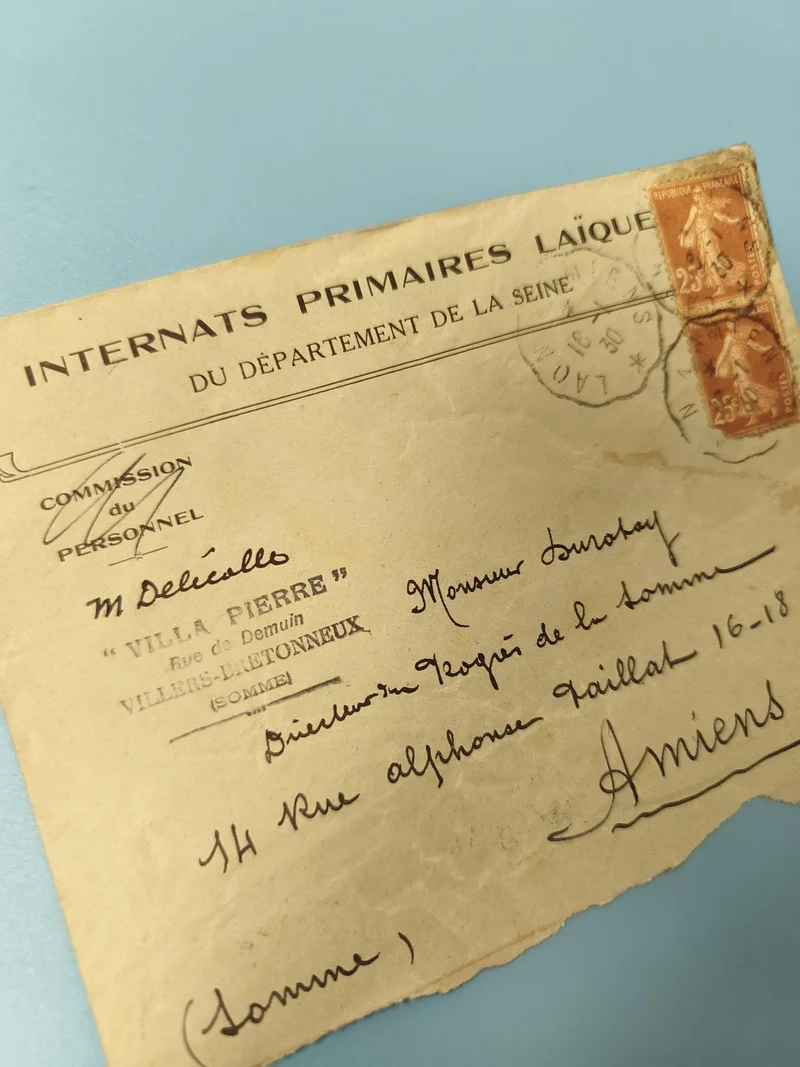 INTERNATS PRIMAIRES LAÏQUE
DU DÉPARTEMENT DE LA SEINE
RÉPUBLIQUE FRANÇAISE
25
POSTES
LAON
16 - 1
30
25
POSTES
COMMISSION
du
PERSONNEL
M Delécolle
" VILLA PIERRE "
Rue de Demuin
VILLERS-BRETONNEUX
(SOMME)
Monsieur
Directeur du Progrès de la Somme
14 Rue alphonse paillat 16-18
Amiens
(Somme)